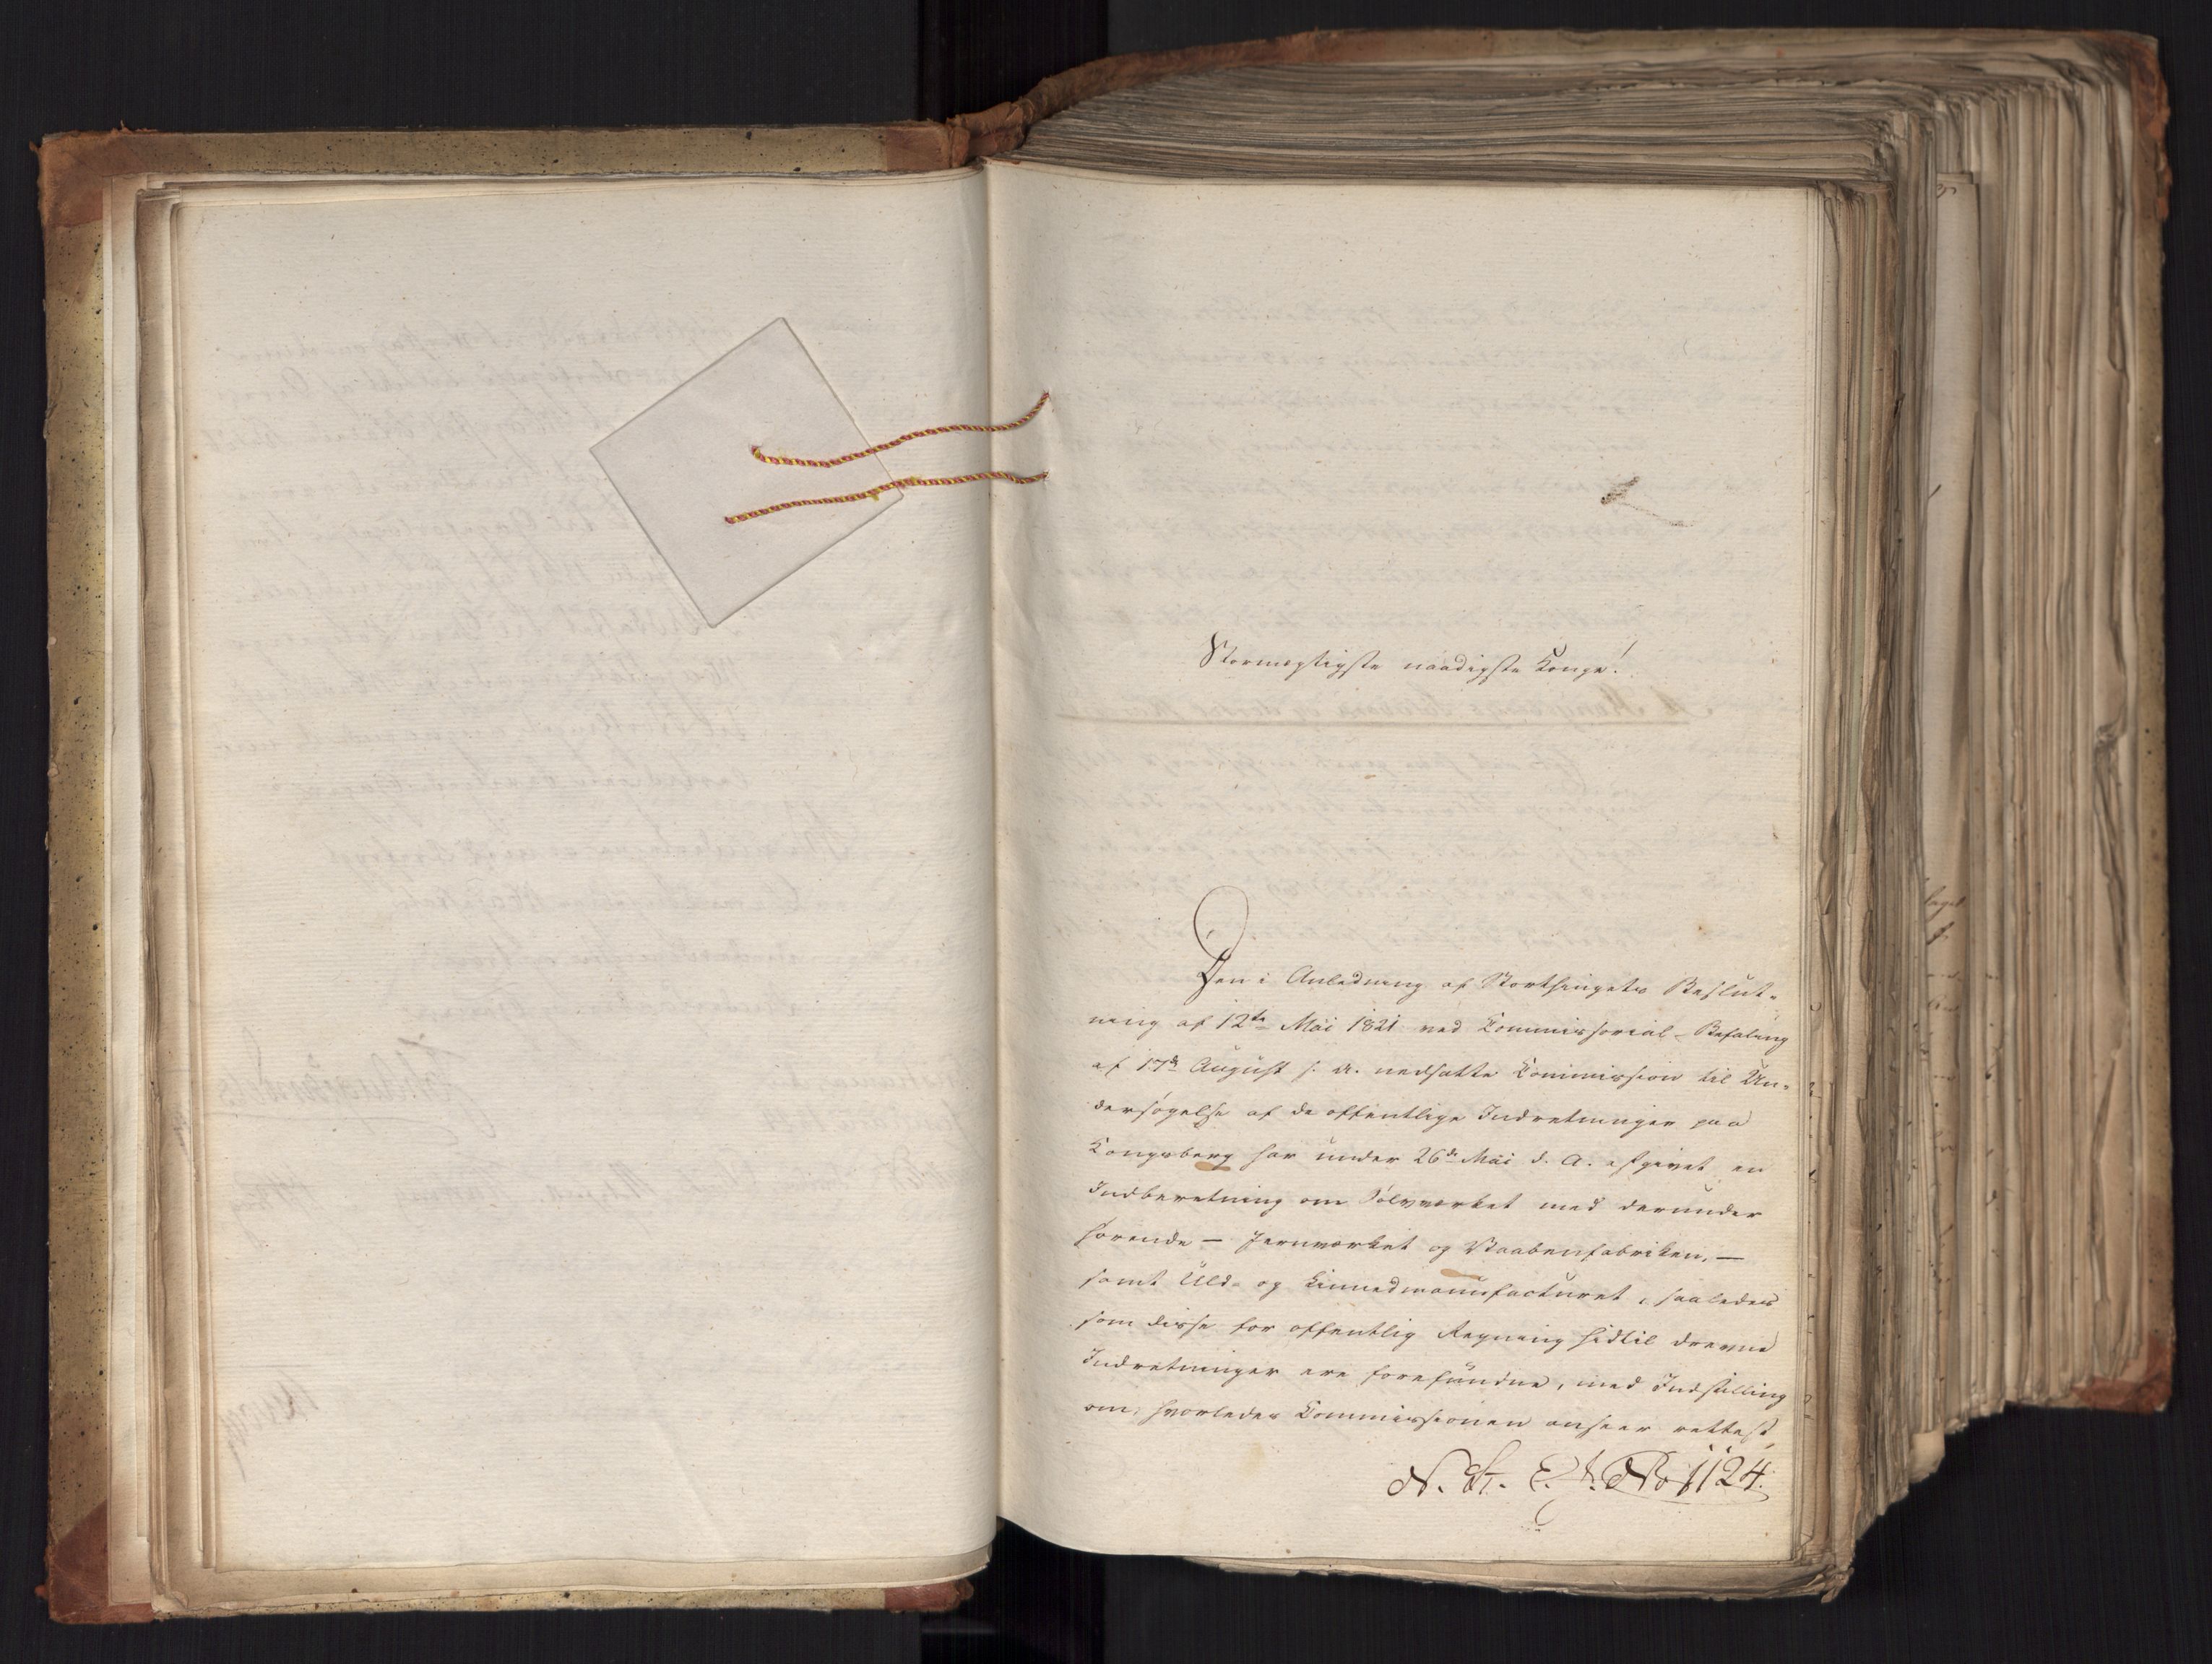 Stormægtigste naadigste Konge!
Den i Anledning af Storthingets Beslut-
ning af 12te Mai 1821 ved Commissorial-Befaling
af 17de August s. A. nedsatte Commission til Un-
dersøgelse af de offentlige Indretninger paa
Kongsberg har under 26de Mai d. A. afgivet en
Indberetning om Sølvværket med derunder
hørende – Jernværket og Vaabenfabriken, –
samt Uld- og Linnedmanufacturet, saaledes
som disse for offentlig Regning hidtil drevne
Indretninger ere forefundne, med Indstilling
om, hvorledes Commissionen anseer rettest
N. St. E. No 1124.